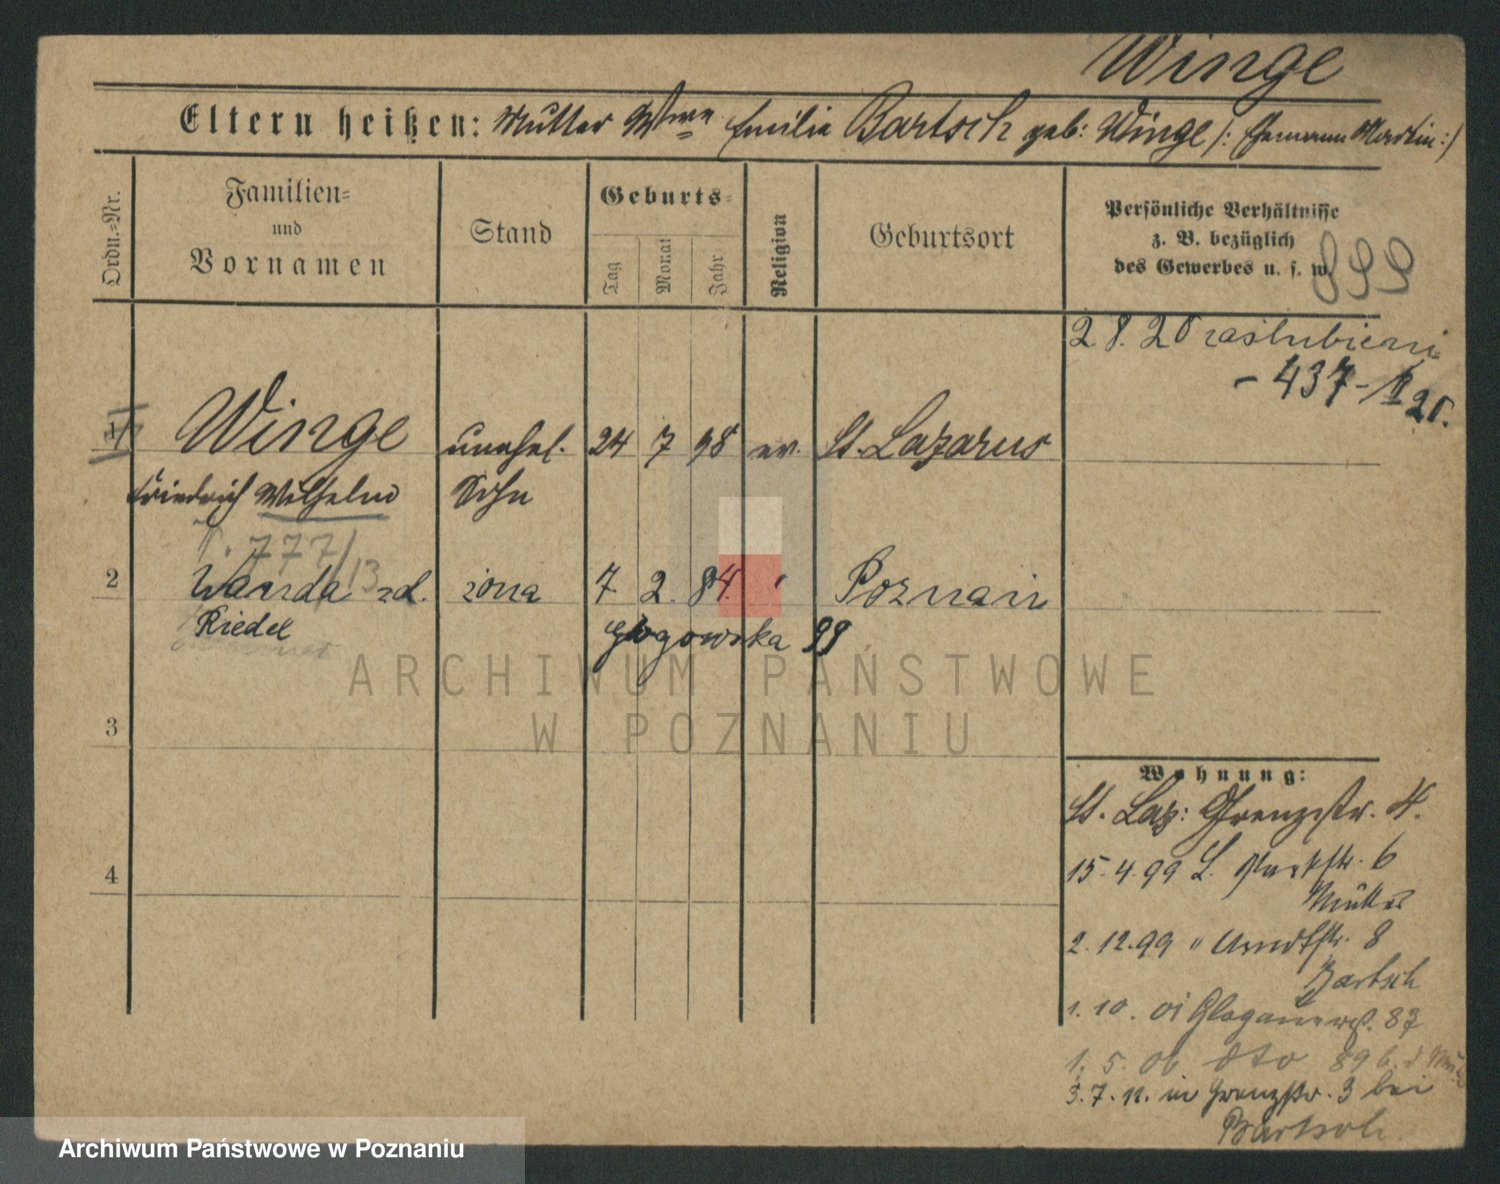 Winge
Eltern heißen: Mutter Wwe Emilie Bartsch geb: Winge /: Ehemann Martin :/
Ordn.=Nr.
Familien=
und
Vornamen
Stand
Geburts=
Tag
Monat
Jahr
Religion
Geburtsort
Persönliche Verhältnisse
z. B. bezüglich
des Gewerbes u. s. w.
899
2. 8. 20 zaślubieni
- 437 - II 20.
1
Winge unehel. 24 7 98 ev. St. Lazarus
Friedrich Wilhelm Sohn
777/13
2 Wanda zd. żona 7 2. 84. Poznań
Riedel Głogowska 99
3
4
Wohnung:
St. Laz: Grenzstr. 4.
15. 4. 99 L. Parkstr. 6
Mutter
2. 12. 99 " Arndtstr. 8
Bartsch
1. 10. 01 Glogauerst. 87
1. 5. 06 dto 89 b. d. Mu
3. 7. 12. in Grenzstr. 3 bei
Bartsch
ARCHIWUM PAŃSTWOWE
W POZNANIU
Archiwum Państwowe w Poznaniu